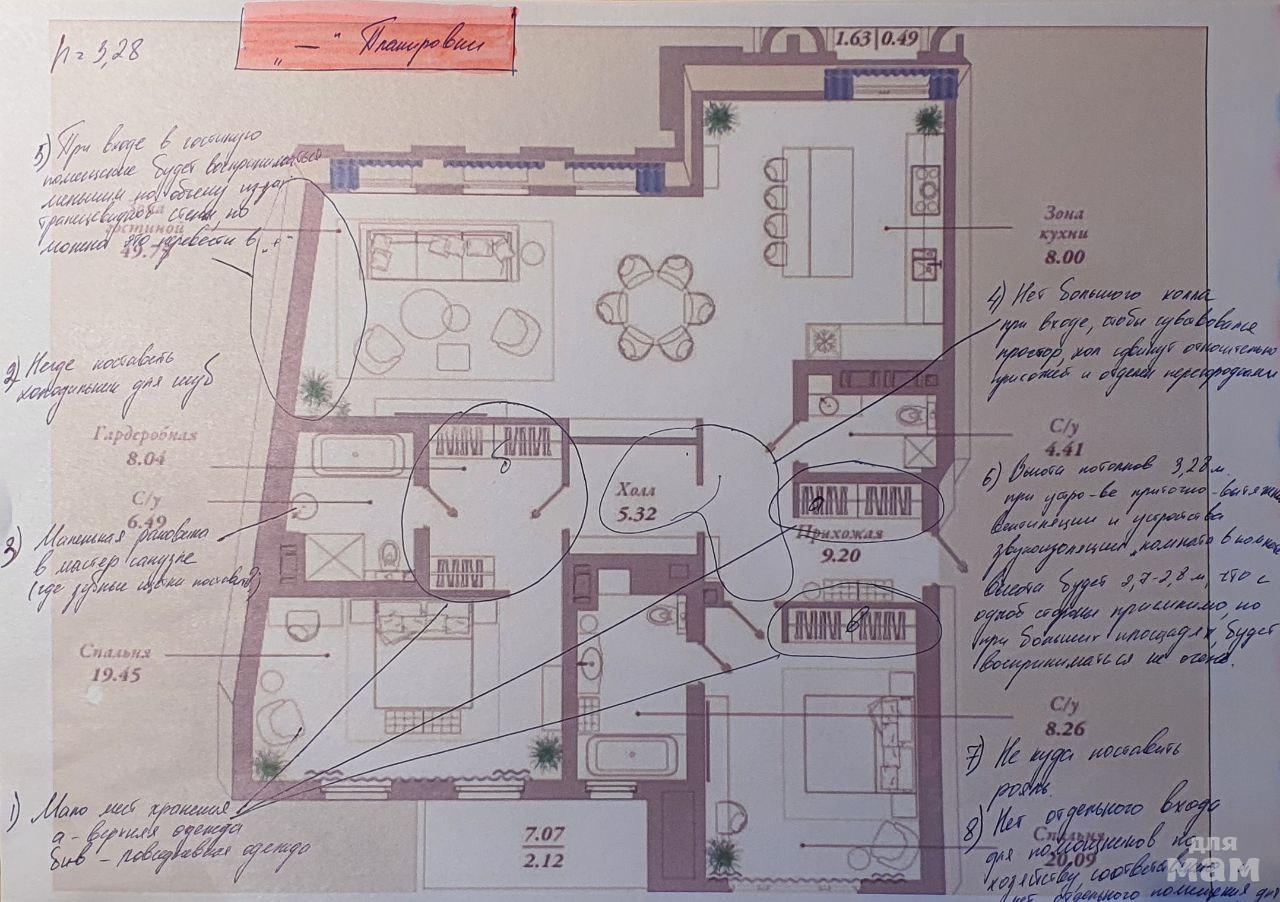 h = 3,28
„—“ Планировки
1.63 | 0.49
5) При входе в гостиную
помещение будет восприниматься
меньшим по объему из-за
трапецевидной стены, но
можно это перевести в „+“
гостиной
49.77
Зона
кухни
8.00
4) Нет большого холла
при входе, чтобы чувствовался
простор, хол сдвинут относительно
прихожей и отделен перегородками
2) Негде поставить
холодильник для шуб
Гардеробная
8.04
С/у
6.49
3) Маленькая раковина
в мастер санузле
(где зубные щетки поставить?)
Холл
5.32
Прихожая
9.20
а
б
в
С/у
4.41
6) Высота потолков 3,28 м.
при устр-ве приточно-вытяжн
вентиляции и устройства
звукоизоляции „комната в комнате
высота будет 2,7-2,8 м, что с
одной стороны приемлимо, но
при больших площадях, будет
восприниматься не очень.
Спальня
19.45
С/у
8.26
7) Не куда поставить
рояль.
1) Мало мест хранения
а - верхняя одежда
б и в - повседневная одежда
7.07
2.12
8) Нет отдельного входа
для помощников по
хозяйству соответственно
нет отдельного помещения для
Спальня
20.09
для
мам